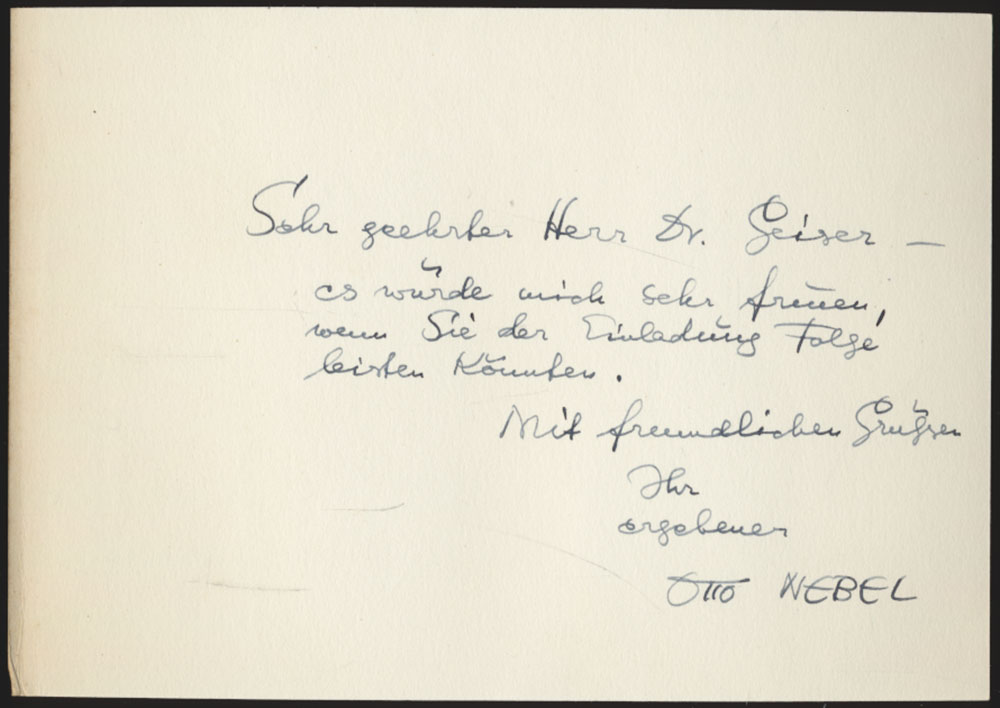 Sehr geehrter Herr Dr. Geiser –
es würde mich sehr freuen,
wenn Sie der Einladung Folge
leisten könnten.
Mit freundlichen Grüßen
Ihr
ergebener
OTTO NEBEL